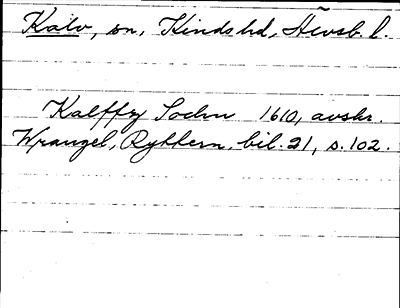 Kälv, sn, Kinds hd, Älvsb. l.
Kalffz Sochn 1610, avskr.
Wrangel, Rytthern, bil. 21, s. 102.